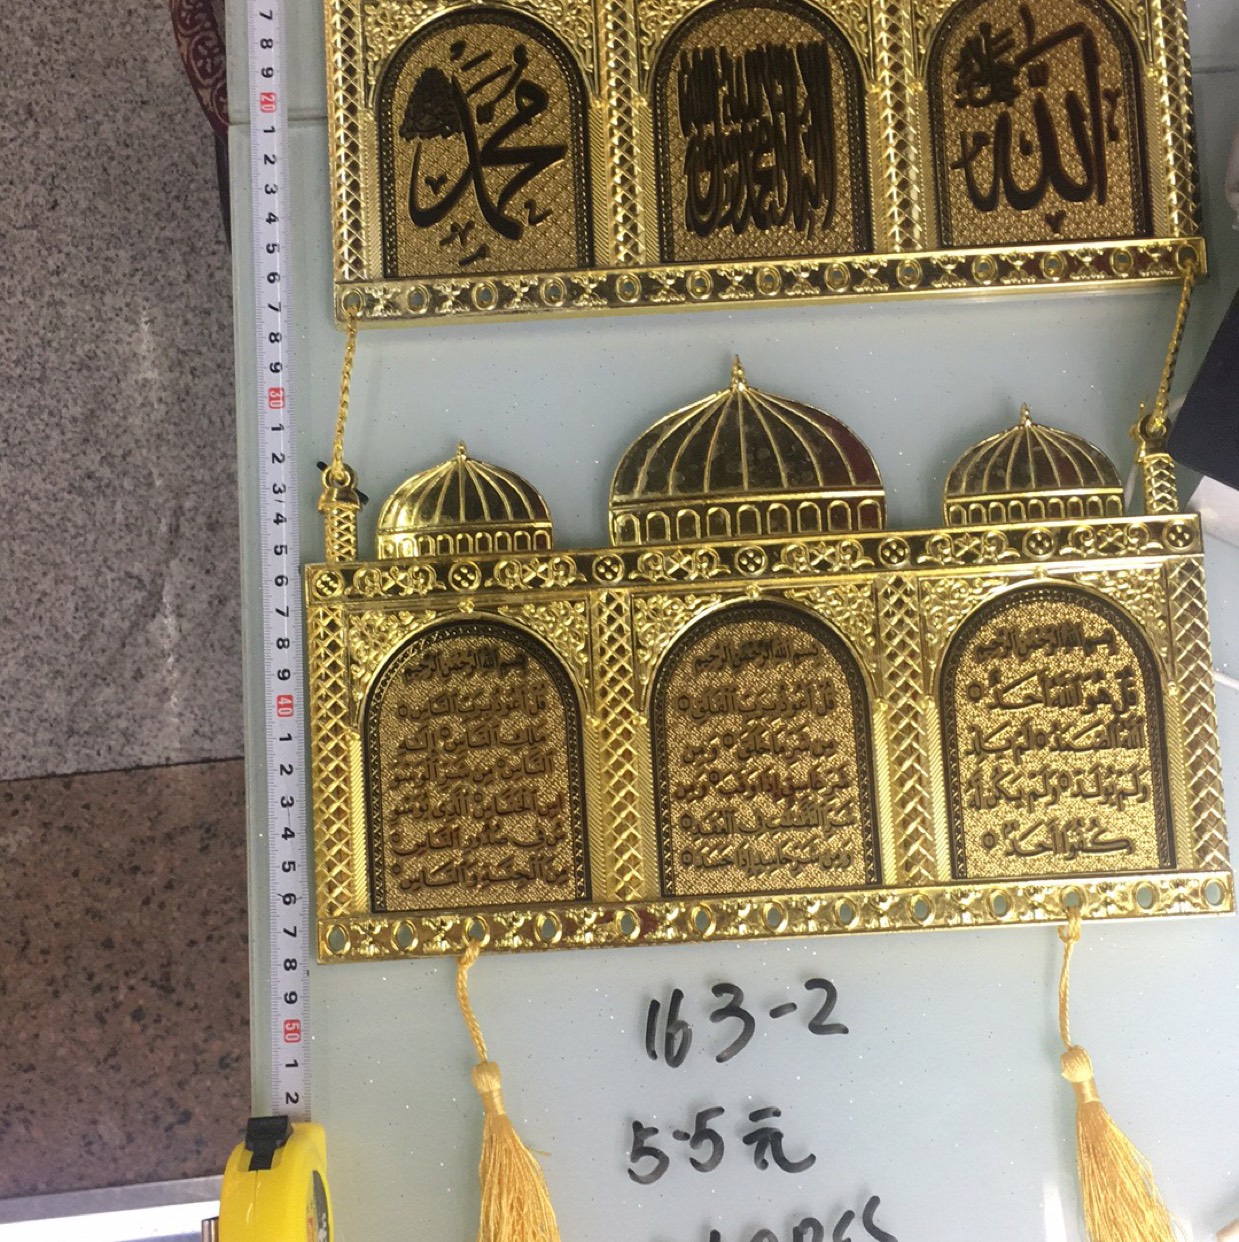 الله
لا اله الا الله محمد رسول الله
محمد
بسم الله الرحمن الرحيم
قل هو الله أحد
الله الصمد لم يلد
ولم يولد ولم يكن له
كفوا أحد
بسم الله الرحمن الرحيم
قل أعوذ برب الفلق
من شر ما خلق ومن
شر غاسق إذا وقب ومن
شر النفثت في العقد
ومن شر حاسد إذا حسد
بسم الله الرحمن الرحيم
قل أعوذ برب الناس
ملك الناس إله
الناس من شر الوسو
اس الخناس الذي يوسو
س في صدور الناس
من الجنة والناس
7 8 9 20 1 2 3 4 5 6 7 8 9 30 1 2 3 4 5 6 7 8 9 40 1 2 3 4 5 6 7 8 9 50 1 2
163-2
5.5元